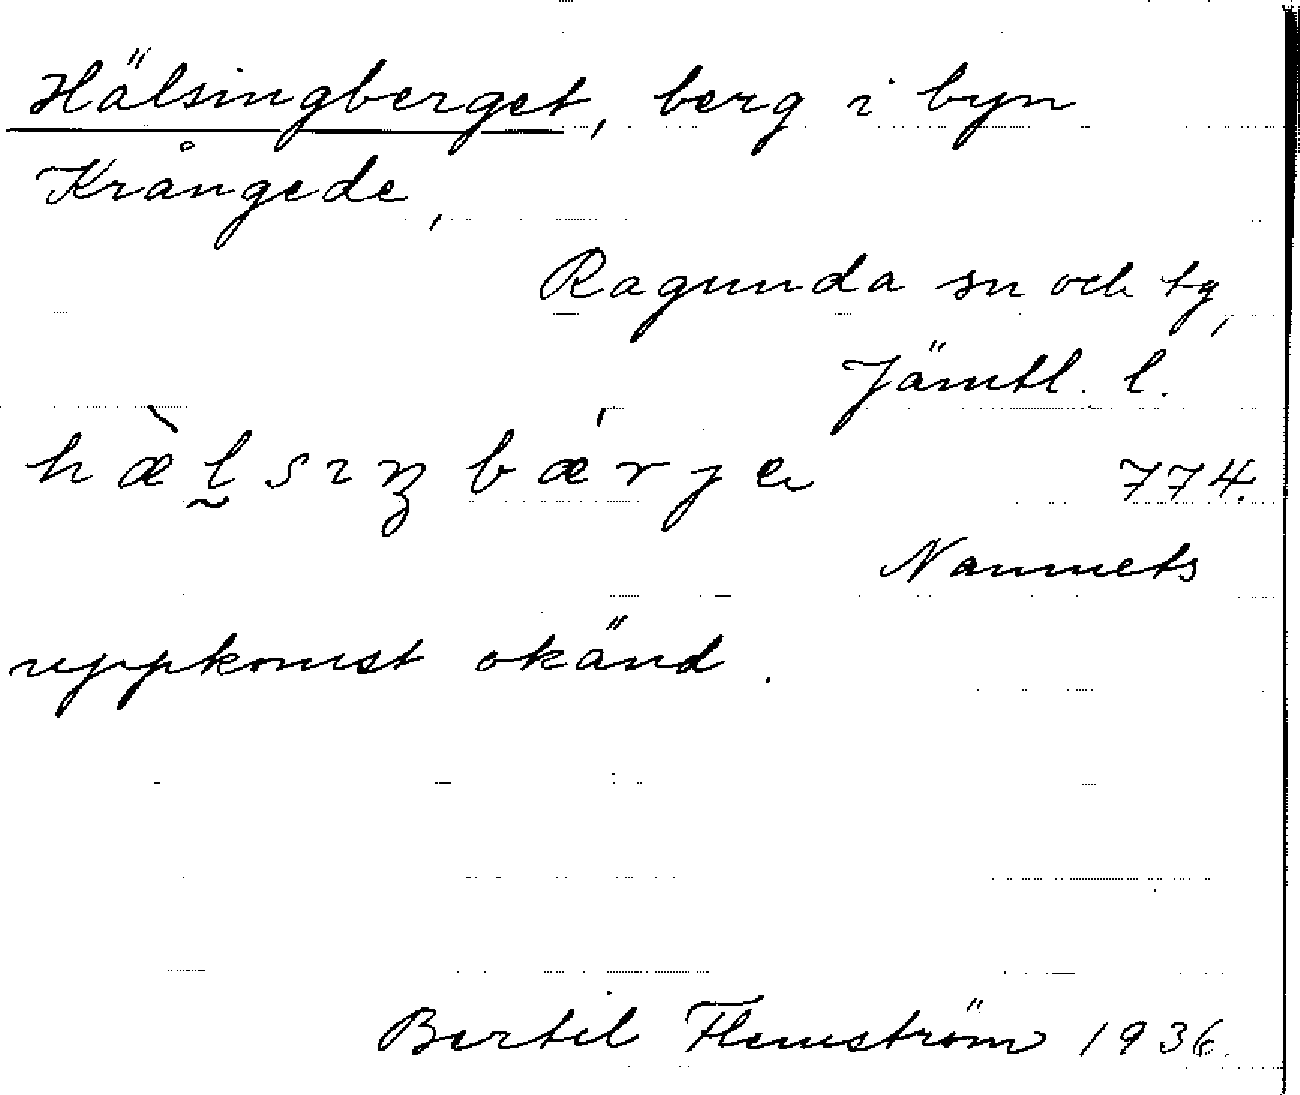 Hälsingberget, berg i byn
Krångede,
Ragunda sn och tg,
Jämtl. l.
hæ̀l̰sıŋbǽrjeͅ 774.
Namnets
uppkomst okänd.
Bertil Flemström 1936.